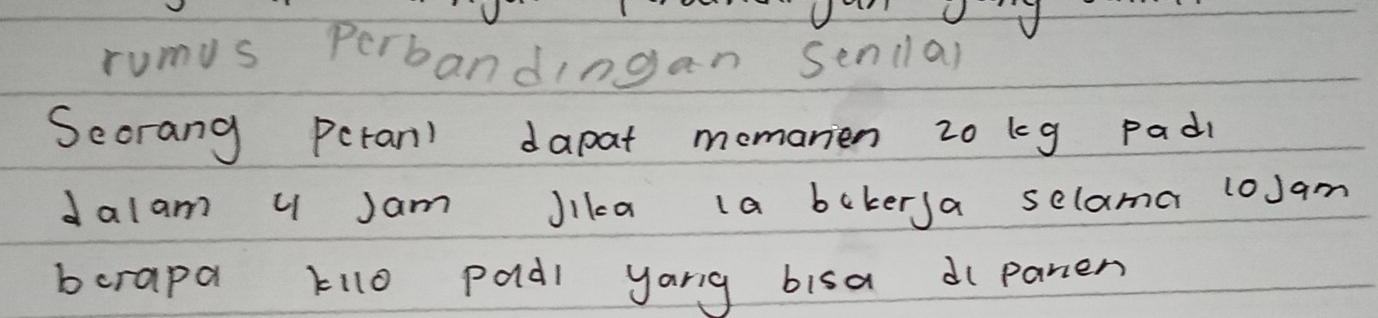 rumus Perbandingan Senilai
Seorang Petani dapat memanen 20 kg padi
dalam 4 Jam Jika ia bekerja selama 10 Jam
berapa kilo padi yang bisa di panen